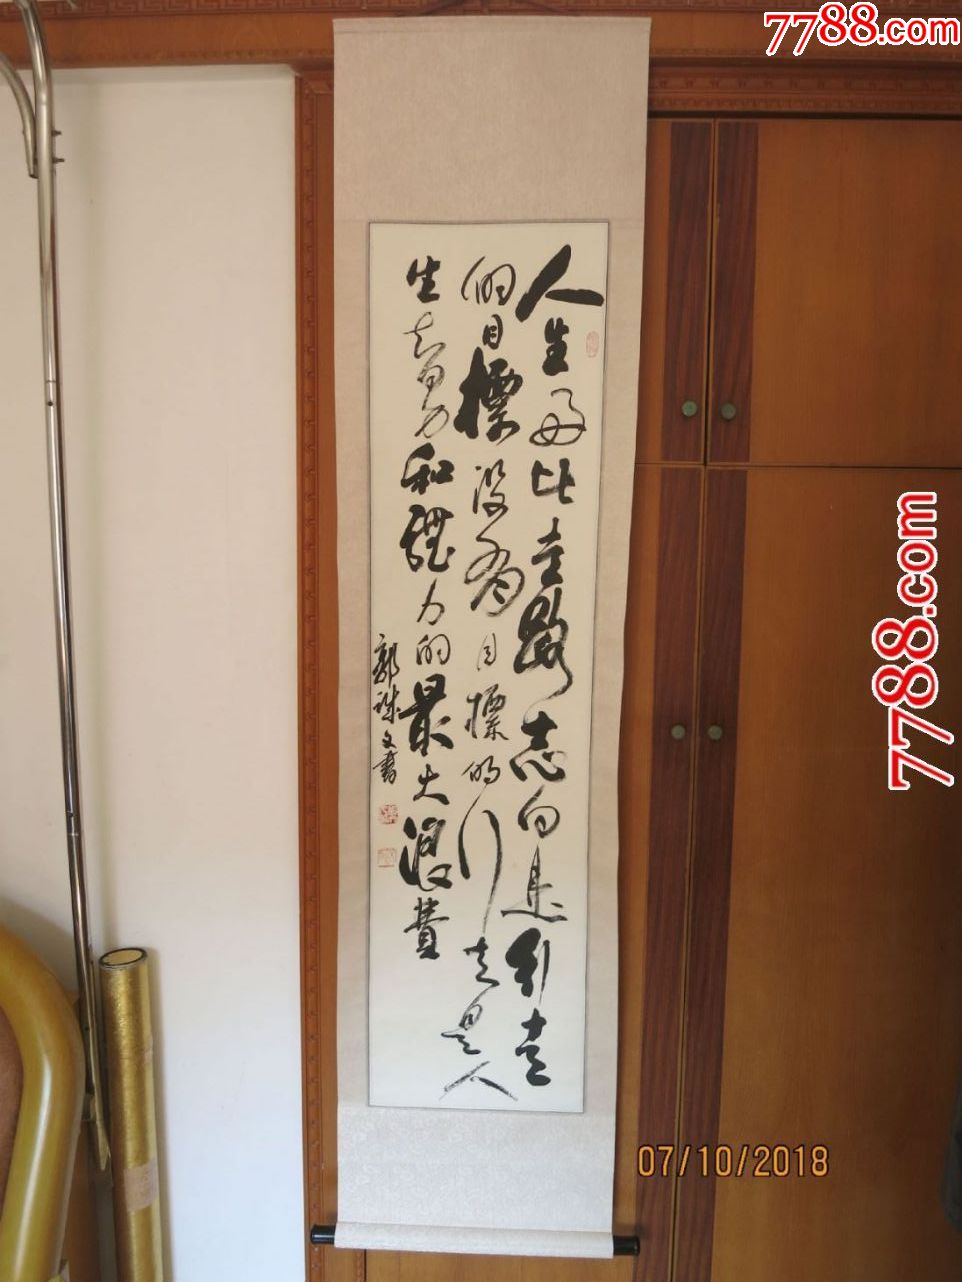 7788.com
人生好比走路志向是引走
的目標没有目標的行走是人
生智力和體力的最大浪費
郭 文書
7788.com
07/10/2018